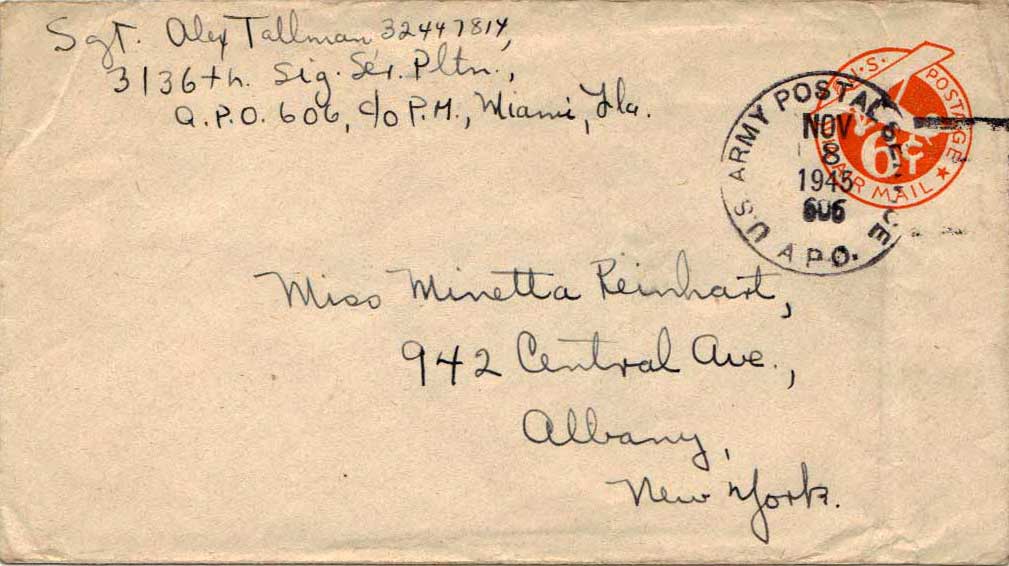 Sgt. Alex Tallman 32447814,
3136th. Sig. Ser. Pltn.,
A.P.O. 606, c/o P.M., Miami, Fla.
U.S. ARMY POSTAL SERVICE
NOV
8
1945
606
A.P.O.
U.S. POSTAGE
6¢
AIR MAIL
Miss Minetta Reinhart,
942 Central Ave.,
Albany,
New York.